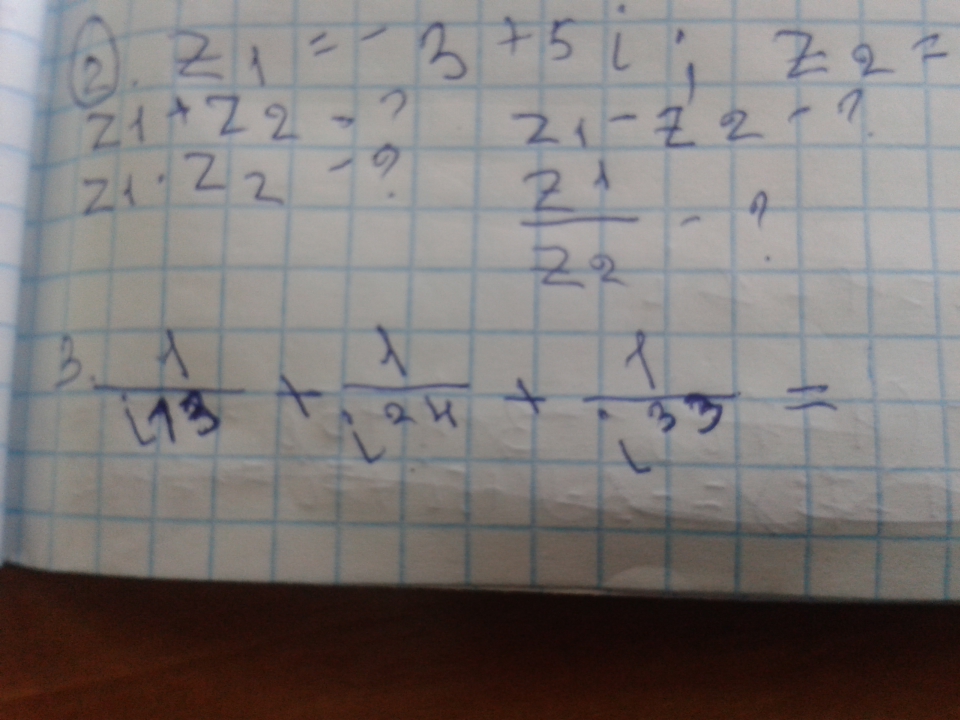 2. z1 = - 3 + 5i; z2 =
z1 + z2 - ? z1 - z2 - ?
z1 · z2 - ? z1/z2 - ?
3. 1/i^13 + 1/i^24 + 1/i^33 =